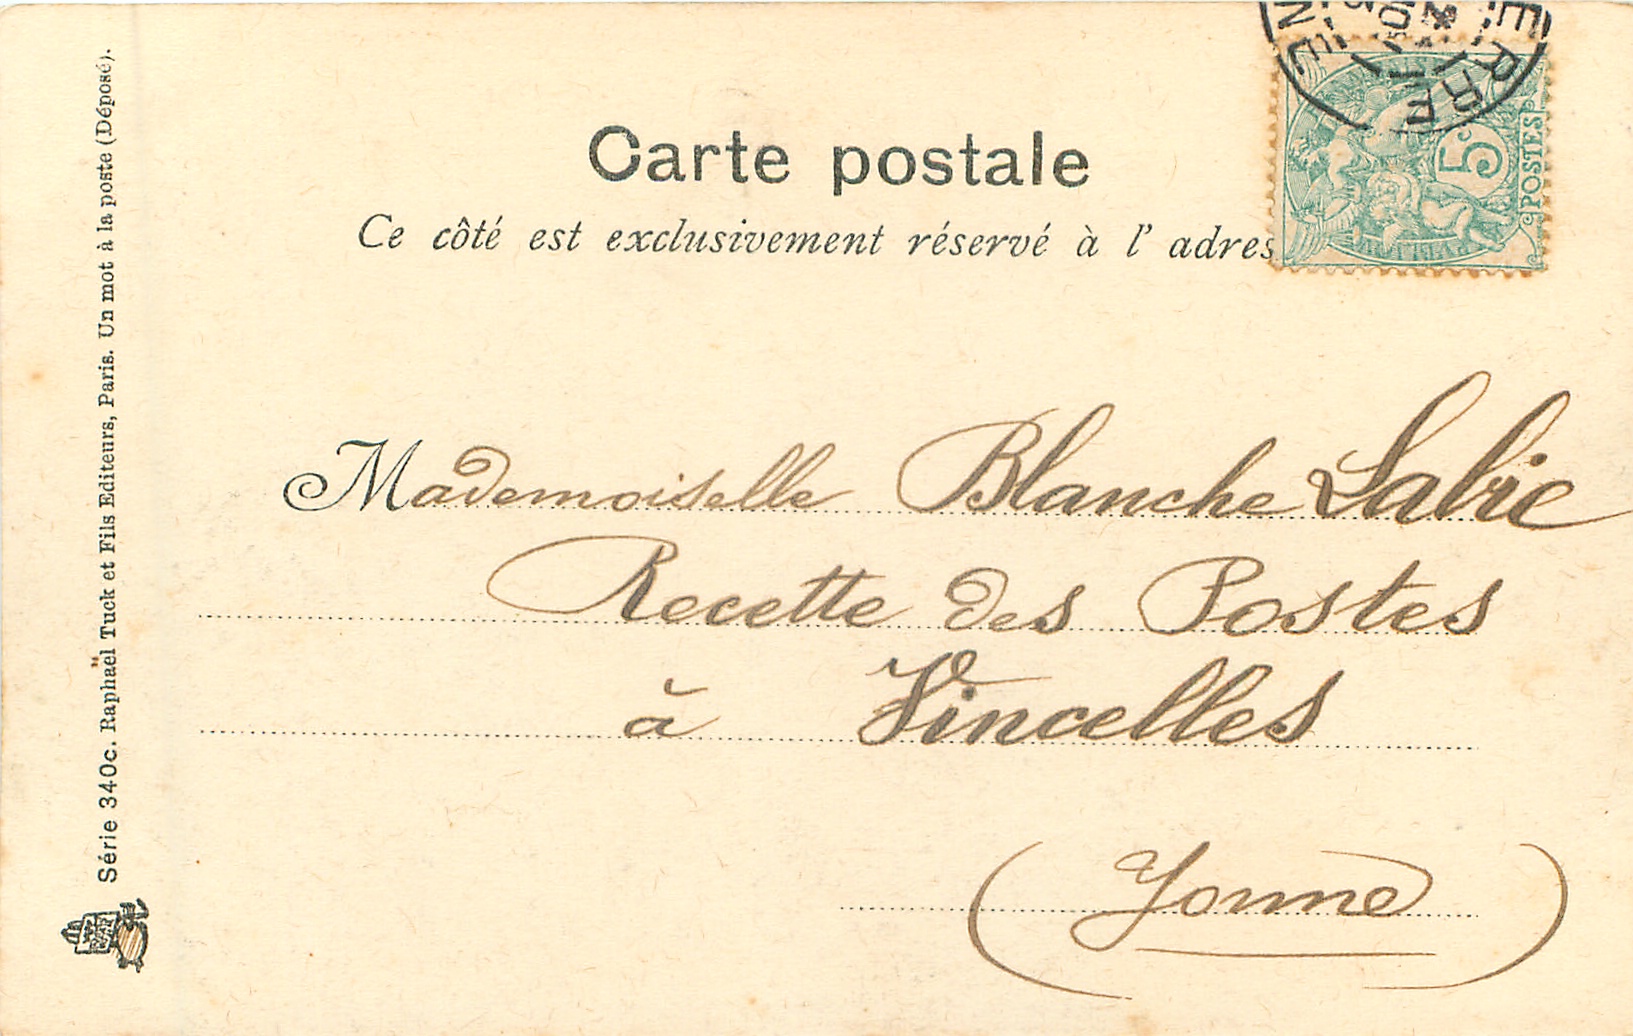 Carte postale
Ce côté est exclusivement réservé à l' adres
5c
POSTES
Mademoiselle Blanche Labie
Recette des Postes
à Vincelles
(Yonne)
Série 340c. Raphaël Tuck et Fils Editeurs, Paris. Un mot à la poste (Déposé).